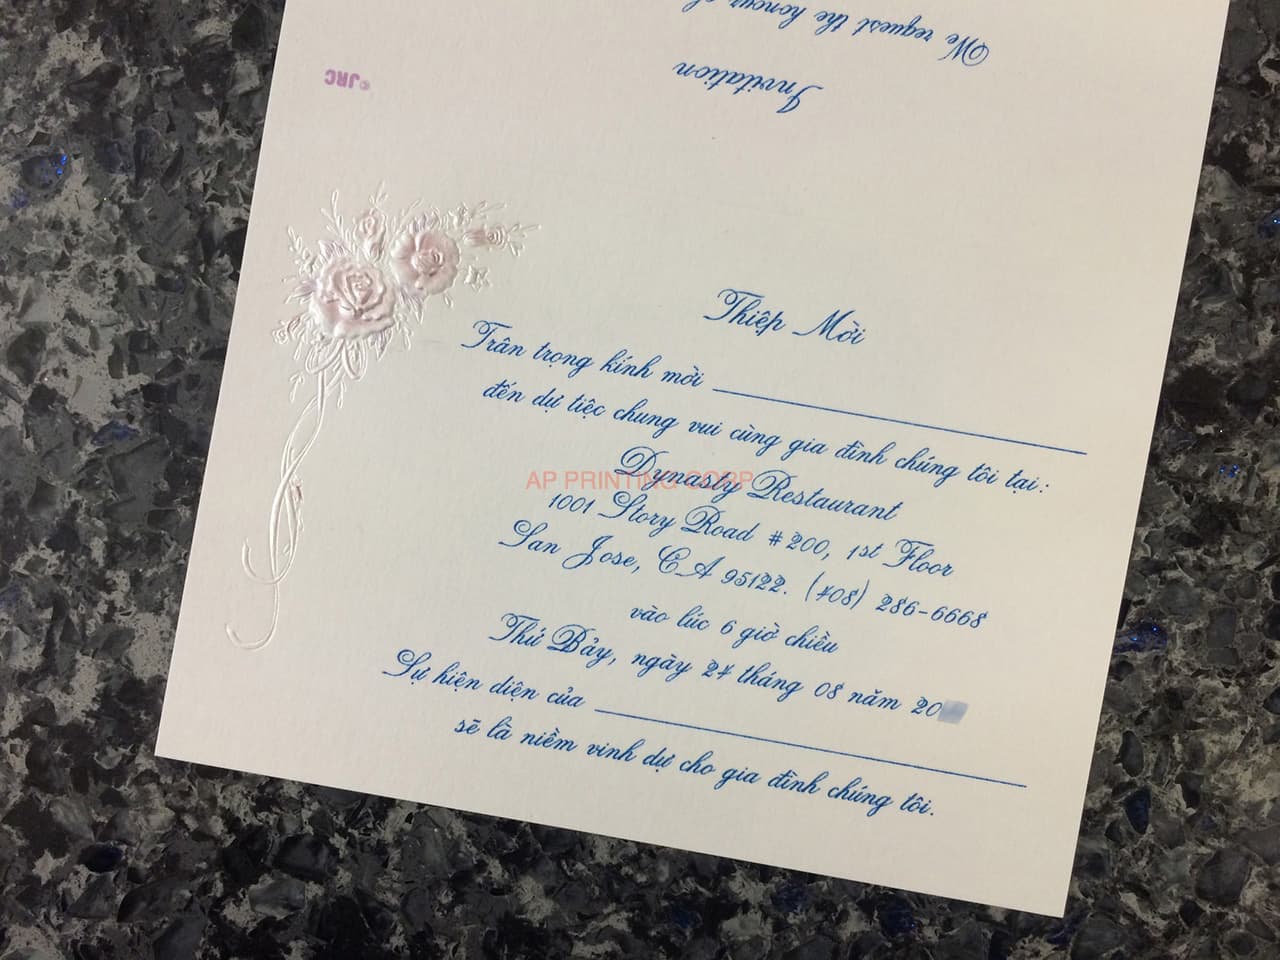 We request the honour
Invitation
©JRC
Thiệp Mời
Trân trọng kính mời
đến dự tiệc chung vui cùng gia đình chúng tôi tại:
Dynasty Restaurant
AP PRINTING CORP
1001 Story Road #200, 1st Floor
San Jose, CA 95122. (408) 286-6668
vào lúc 6 giờ chiều
Thứ Bảy, ngày 27 tháng 08 năm 20
Sự hiện diện của
sẽ là niềm vinh dự cho gia đình chúng tôi.